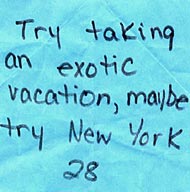 Try taking
an exotic
vacation, maybe
try New York
28